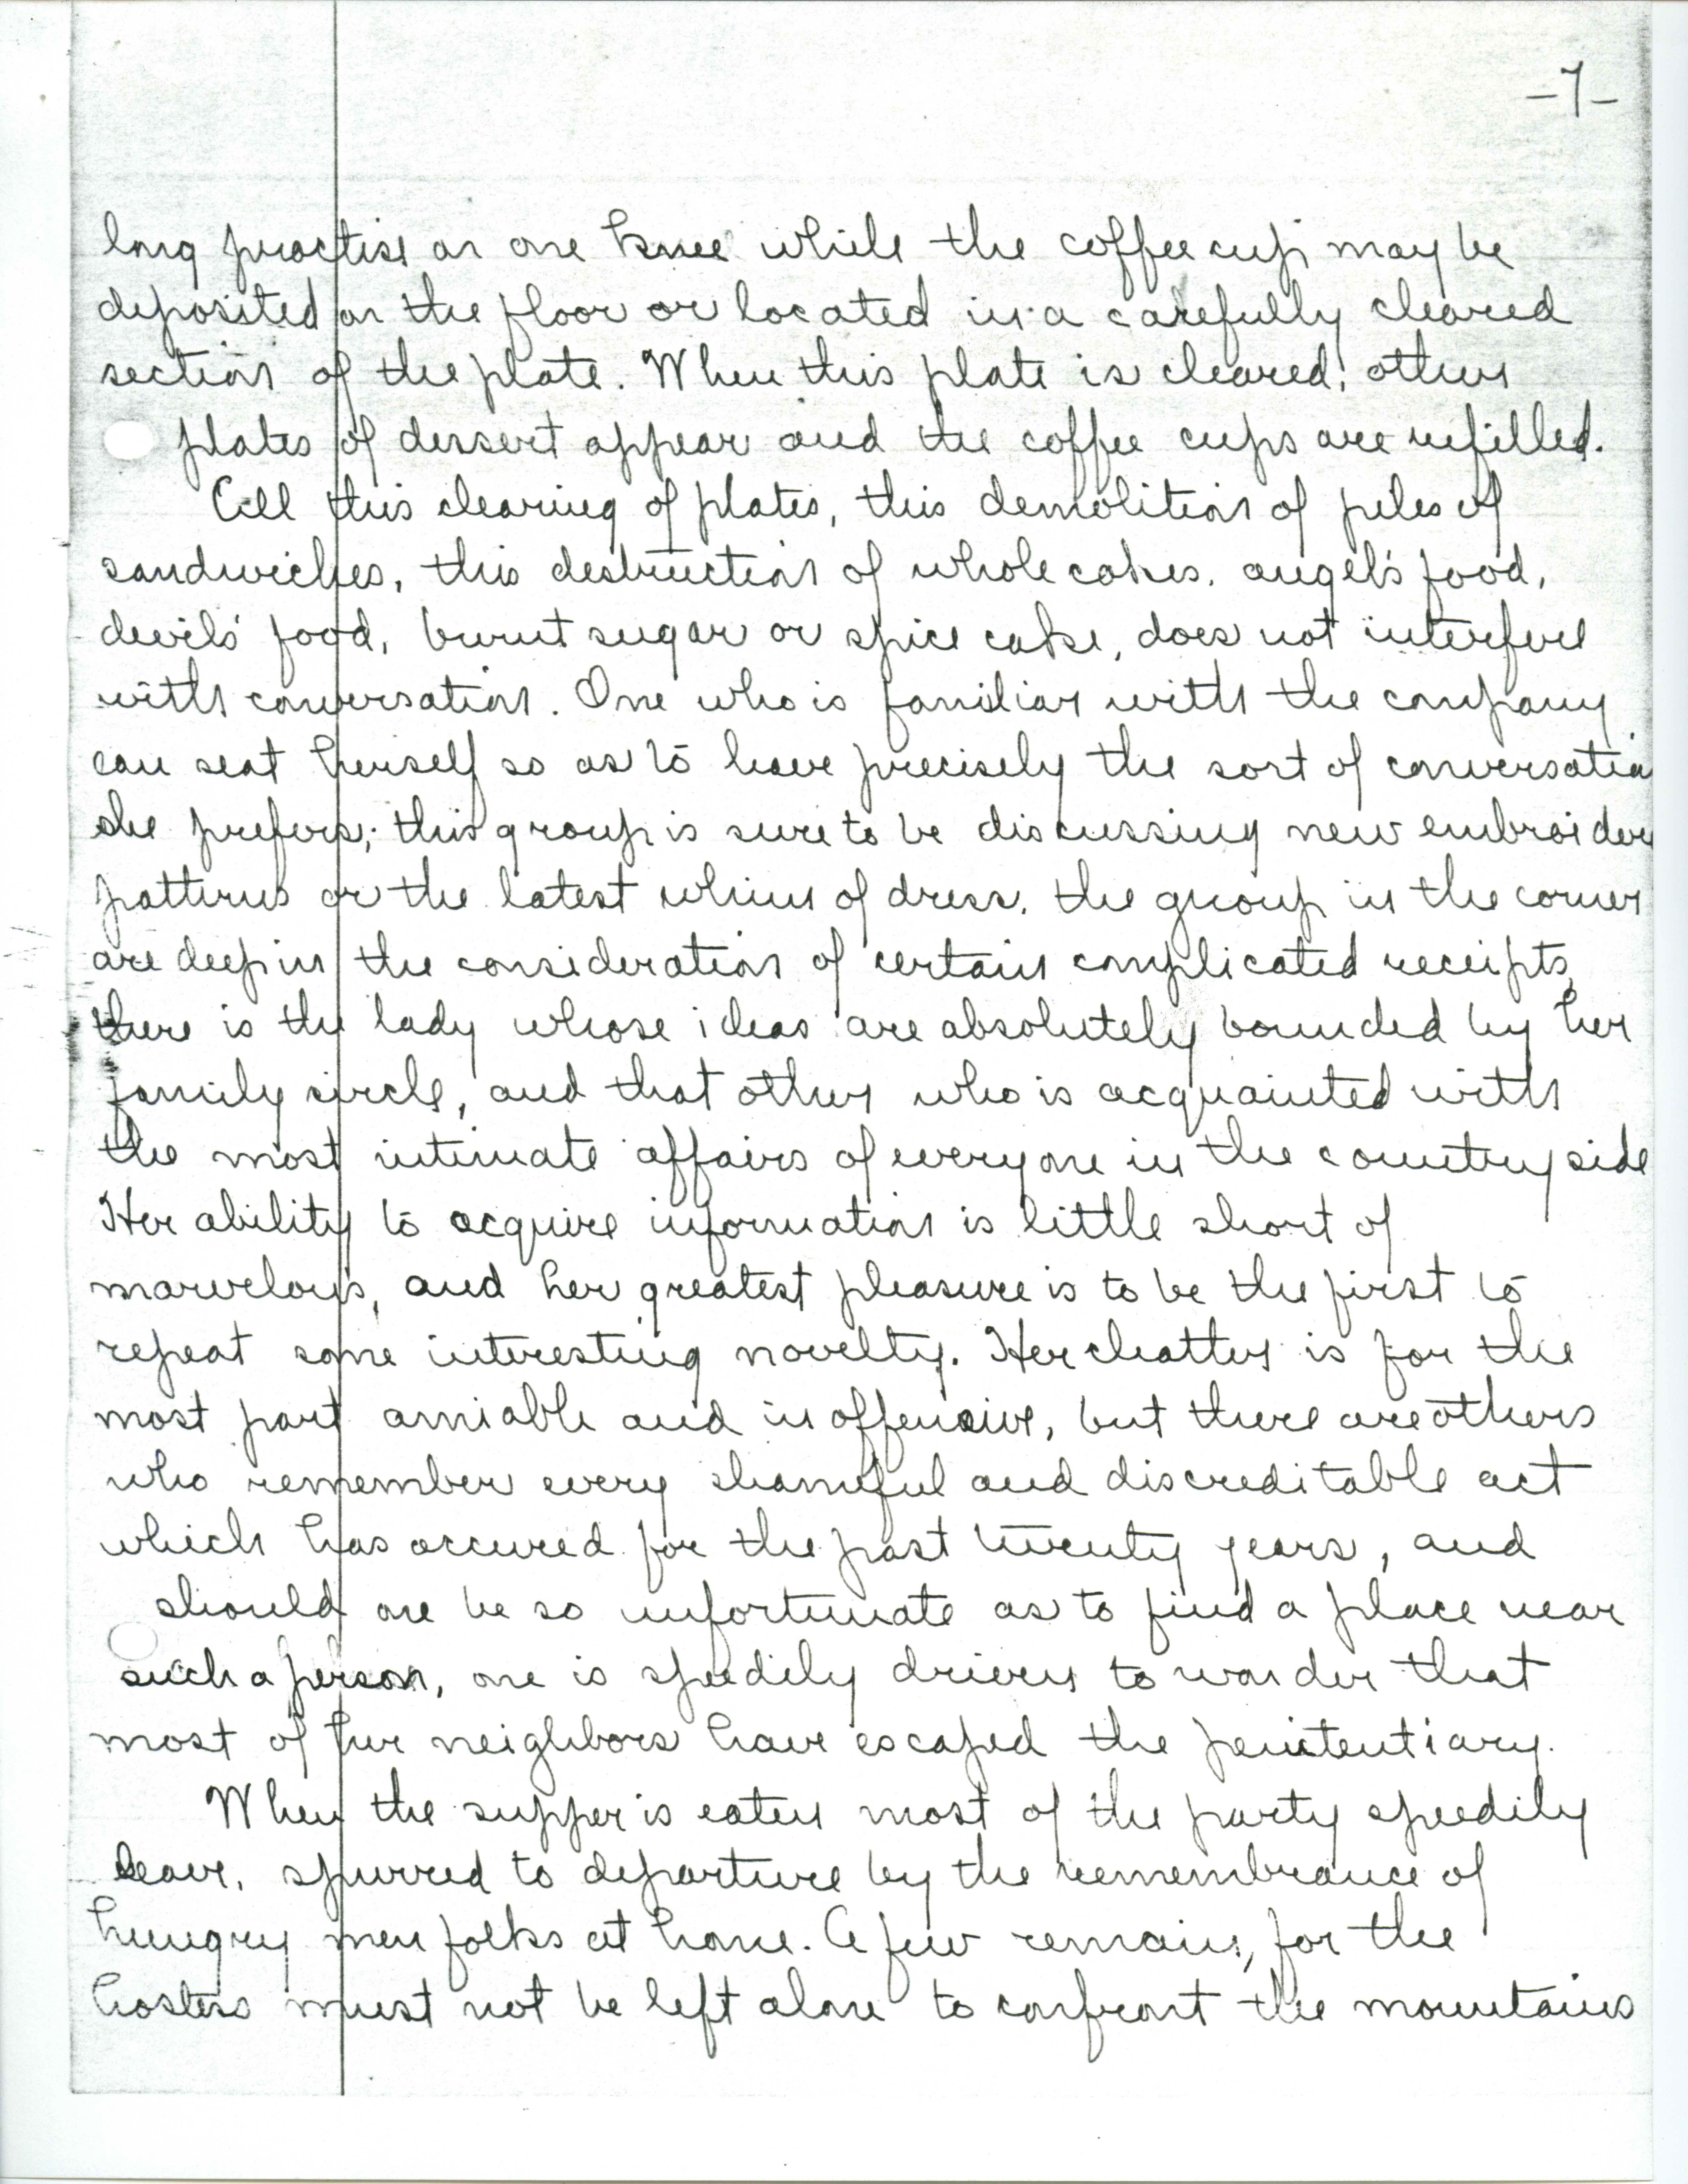 -7-
long practise on one knee while the coffee cup may be
deposited on the floor or located in a carefully cleared
section of the plate. When this plate is cleared, other
plates of dessert appear and the coffee cups are refilled.
All this clearing of plates, this demolition of piles of
sandwiches, this destruction of whole cakes, angel's food,
devil's food, burnt sugar or spice cake, does not interfere
with conversation. One who is familiar with the company
can seat herself so as to have precisely the sort of conversation
she prefers; this group is sure to be discussing new embroider
patterns or the latest whims of dress, the group in the corner
are deep in the consideration of certain complicated receipts,
there is the lady whose ideas are absolutely bounded by her
family circle, and that other who is acquainted with
the most intimate affairs of everyone in the country side
Her ability to acquire information is little short of
marvelous, and her greatest pleasure is to be the first to
repeat some interesting novelty. Her chatter is for the
most part amiable and inoffensive, but there are others
who remember every shameful and discreditable act
which has occured for the past twenty years, and
should one be so unfortunate as to find a place near
such a person, one is speedily driven to wonder that
most of her neighbors have escaped the penitentiary.
When the supper is eaten most of the party speedily
leave, spurred to departure by the remembrance of
hungry men folks at home. A few remain, for the
hostess must not be left alone to confront the mountains